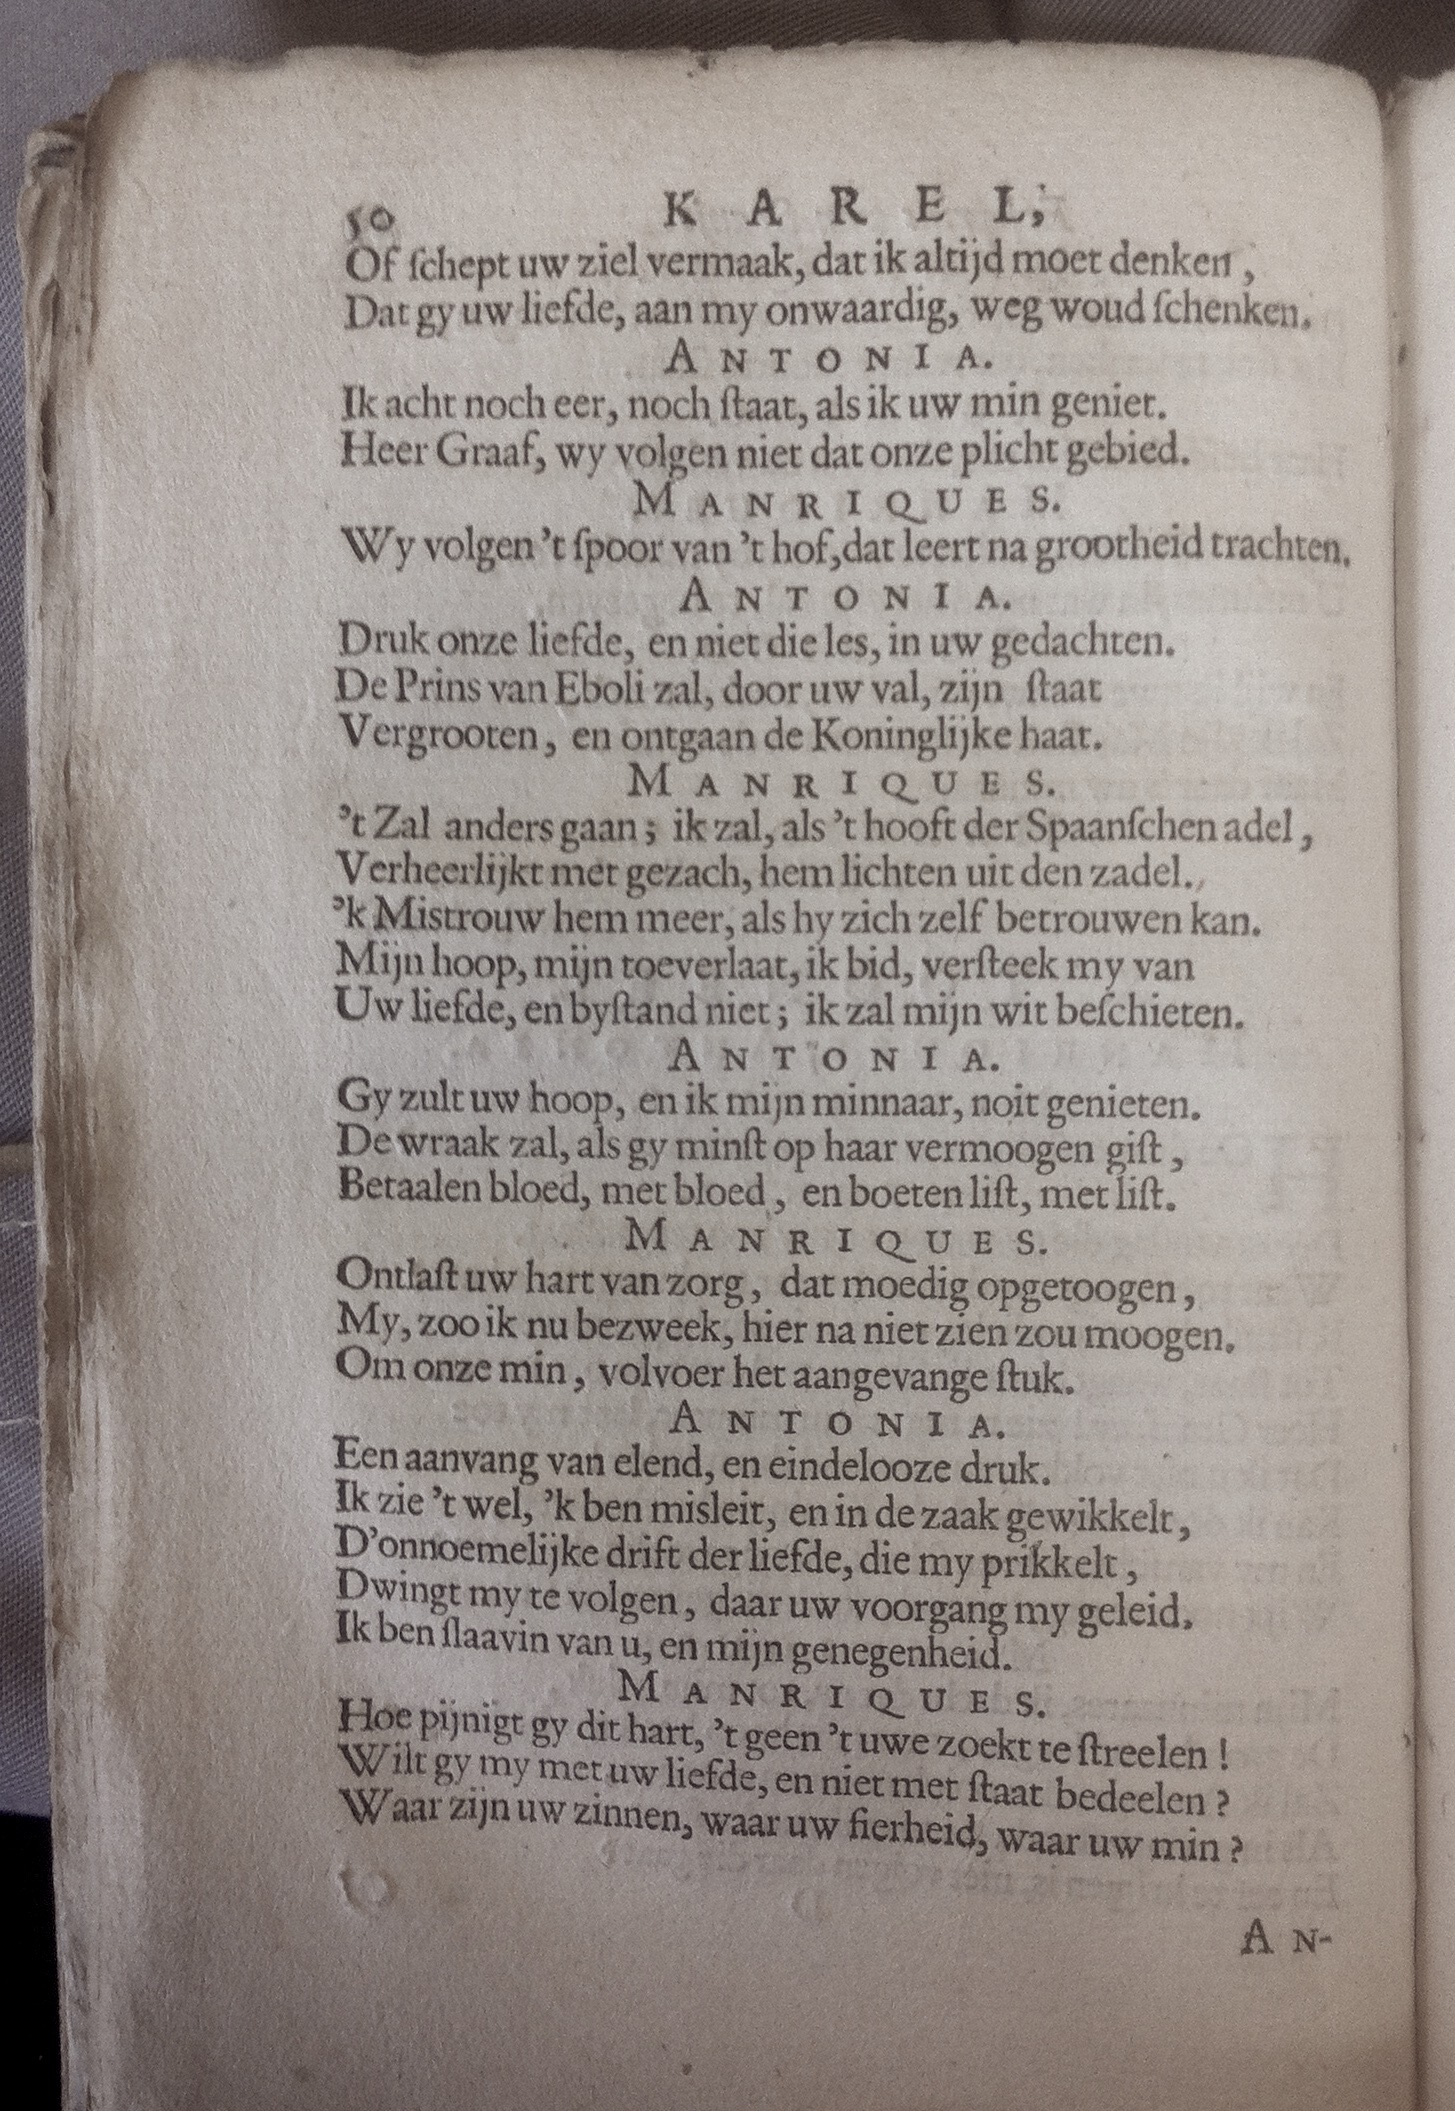 50 KAREL,
Of ſchept uw ziel vermaak, dat ik altijd moet denken,
Dat gy uw liefde, aan my onwaardig, weg woud ſchenken.
ANTONIA.
Ik acht noch eer, noch ſtaat, als ik uw min geniet.
Heer Graaf, wy volgen niet dat onze plicht gebied.
MANRIQUES.
Wy volgen 't ſpoor van 't hof, dat leert na grootheid trachten.
ANTONIA.
Druk onze liefde, en niet die les, in uw gedachten.
De Prins van Eboli zal, door uw val, zijn ſtaat
Vergrooten, en ontgaan de Koninglijke haat.
MANRIQUES.
't Zal anders gaan; ik zal, als 't hooft der Spaanſchen adel,
Verheerlijkt met gezach, hem lichten uit den zadel.
'k Mistrouw hem meer, als hy zich zelf betrouwen kan.
Mijn hoop, mijn toeverlaat, ik bid, verſteek my van
Uw liefde, en byſtand niet; ik zal mijn wit beſchieten.
ANTONIA.
Gy zult uw hoop, en ik mijn minnaar, noit genieten.
De wraak zal, als gy minſt op haar vermoogen giſt,
Betaalen bloed, met bloed, en boeten liſt, met liſt.
MANRIQUES.
Ontlaſt uw hart van zorg, dat moedig opgetoogen,
My, zoo ik nu bezweek, hier na niet zien zou moogen.
Om onze min, volvoer het aangevange ſtuk.
ANTONIA.
Een aanvang van elend, en eindelooze druk.
Ik zie 't wel, 'k ben misleit, en in de zaak gewikkelt,
D'onnoemelijke drift der liefde, die my prikkelt,
Dwingt my te volgen, daar uw voorgang my geleid.
Ik ben ſlaavin van u, en mijn genegenheid.
MANRIQUES.
Hoe pijnigt gy dit hart, 't geen 't uwe zoekt te ſtreelen!
Wilt gy my met uw liefde, en niet met ſtaat bedeelen?
Waar zijn uw zinnen, waar uw fierheid, waar uw min?
AN-